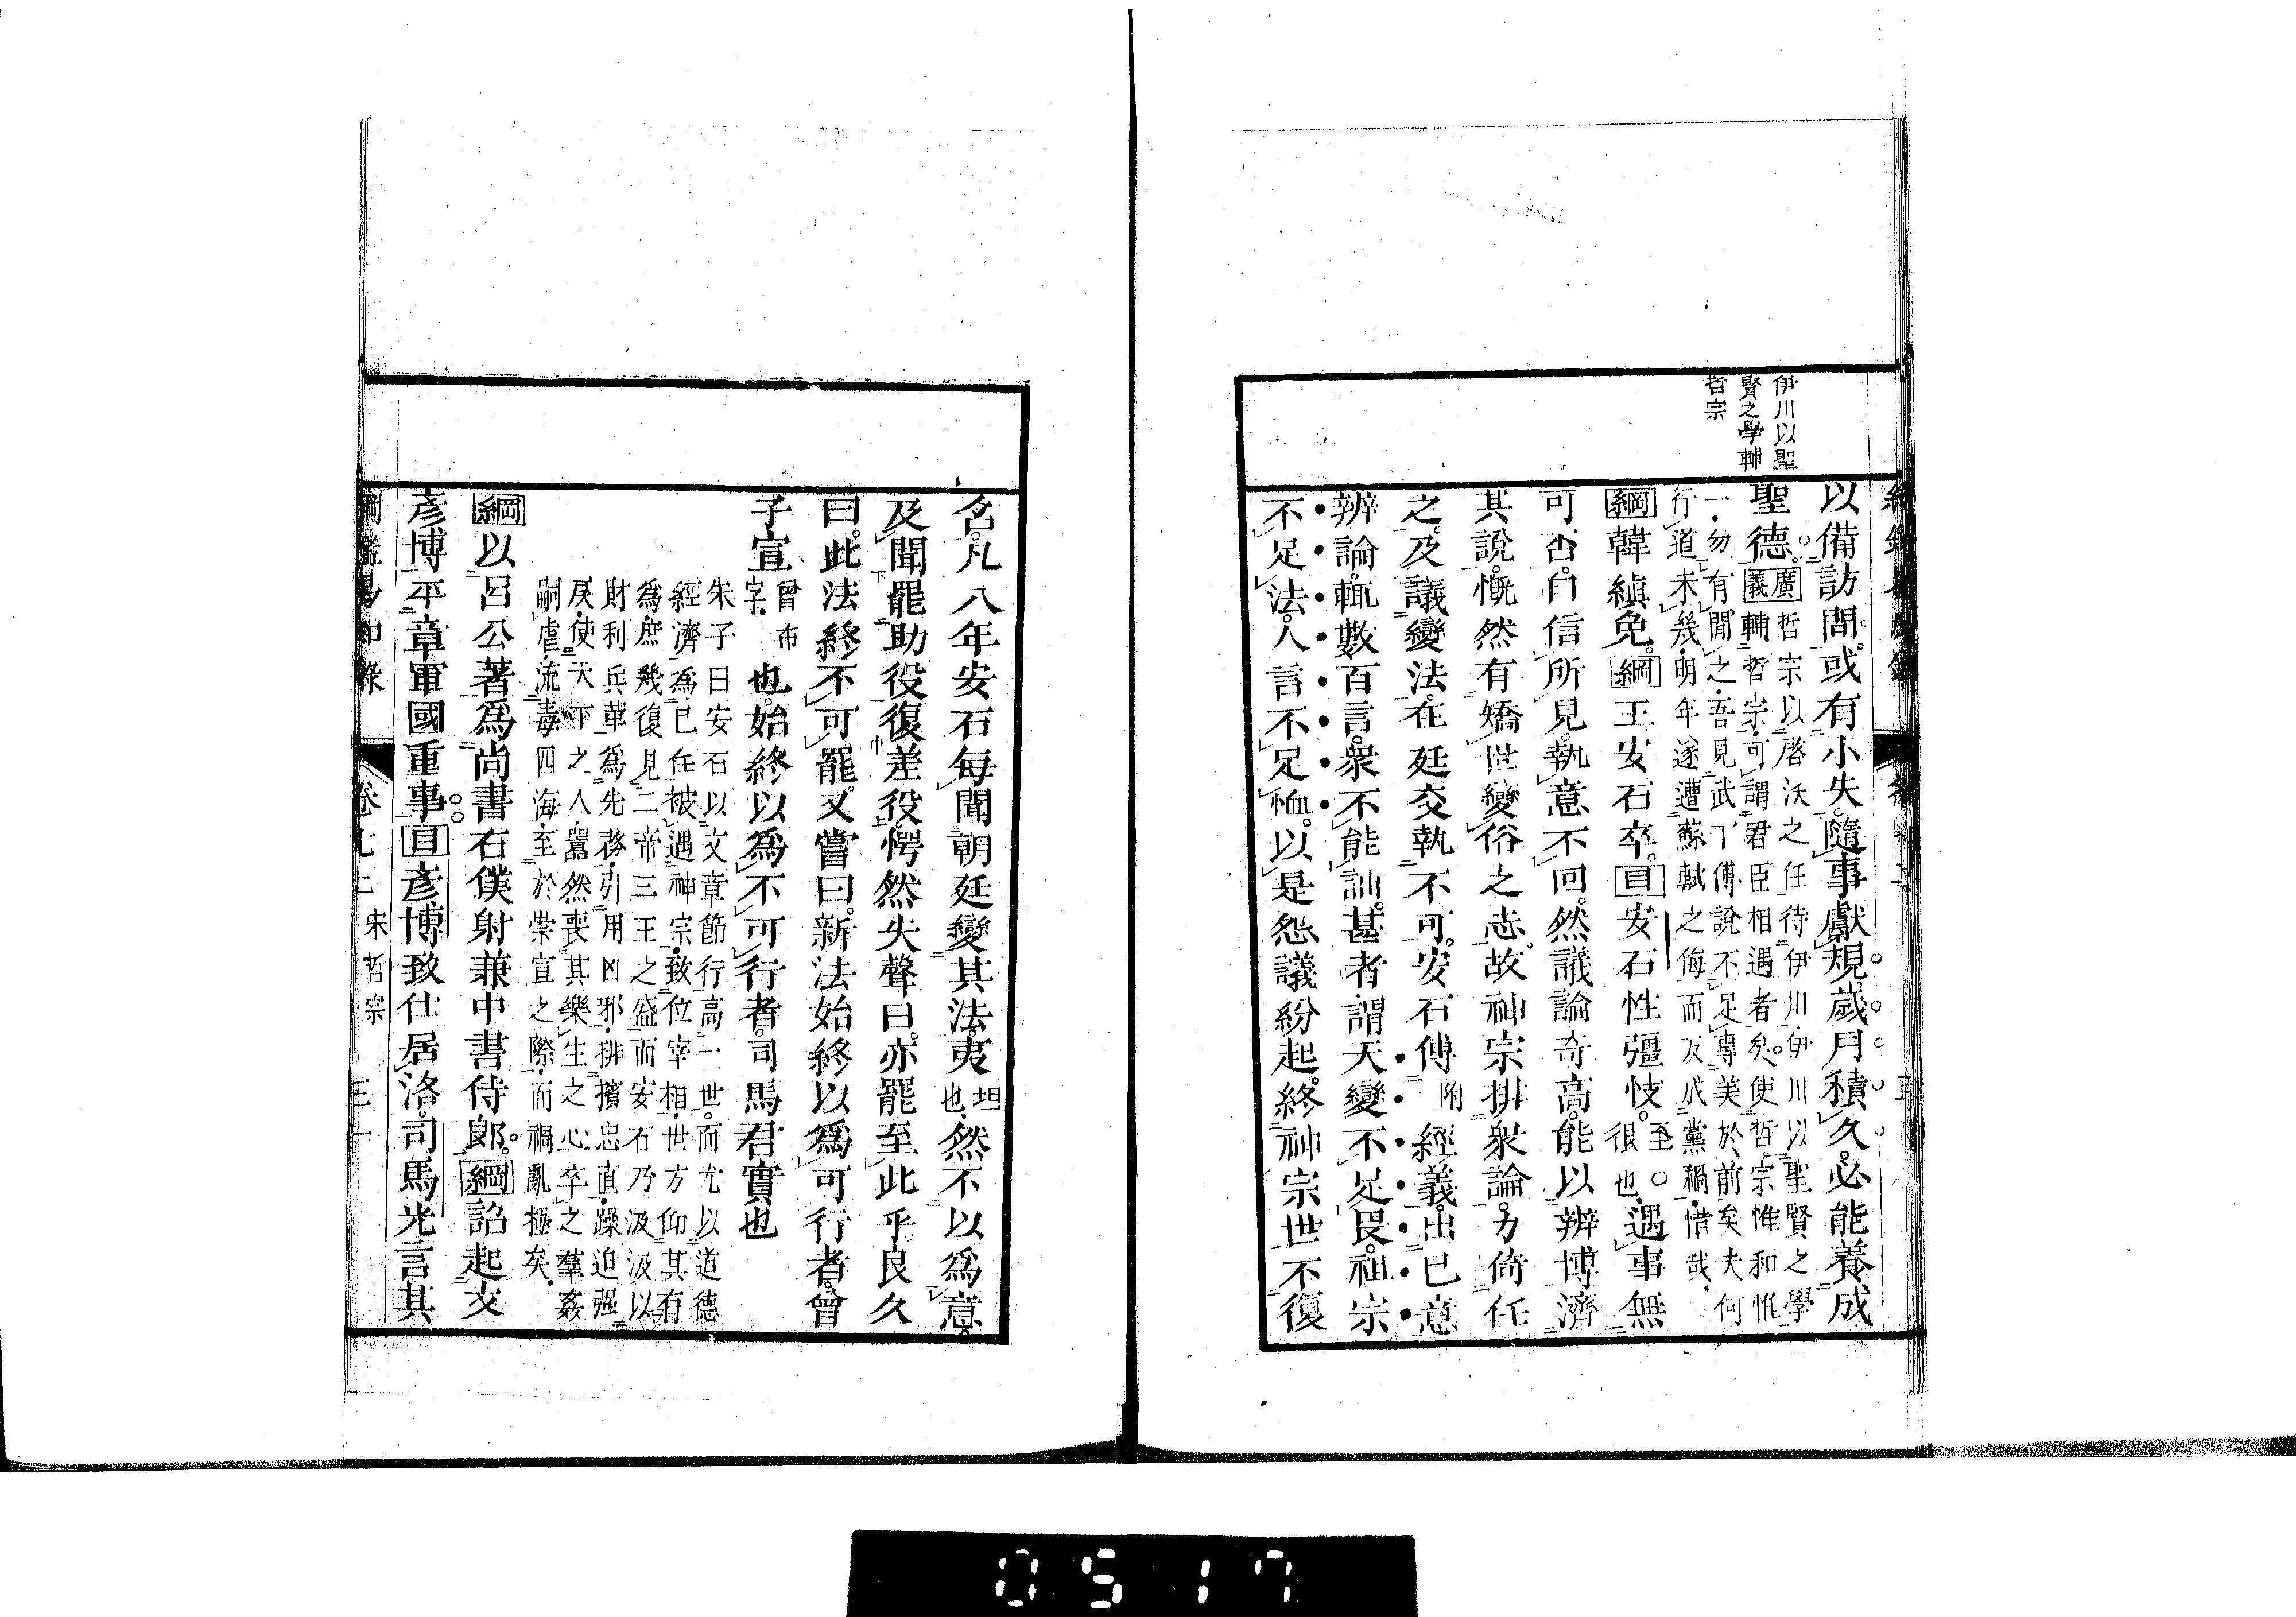 伊川以聖
賢之學輔
哲宗
以備訪問。或有小失。隨事獻規。歲月積久。必能養成
聖德。廣義
哲宗以啓沃之任待伊川。伊川以聖賢之學
輔哲宗。可謂君臣相遇者矣。使哲宗惟和惟
一。勿有閒之。吾見武丁傅說不足專美於前矣夫何
行道未幾。明年遂遭蘇軾之侮而反成黨禍。惜哉。
綱韓縝免。綱王安石卒。目安石性彊忮。至很也。遇事無
可否。自信所見。執意不回。然議論奇高。能以辨博濟
其說。慨然有矯世變俗之志。故神宗排衆論。力倚任
之。及議變法。在廷交執不可。安石傅附經義。出己意
辨論。輒數百言。衆不能詘。甚者謂天變不足畏。祖宗
不足法。人言不足恤。以是怨議紛起。終神宗世不復
名。凡八年安石每聞朝廷變其法。夷坦也。然不以爲意。
及聞罷助役復差役。愕然失聲曰。亦罷至此乎良久
曰。此法終不可罷。又嘗曰。新法始終以爲可行者。曾
子宣曾布字。也。始終以爲不可行者。司馬君實也
朱子曰安石以文章節行高一世。而尤以道德
經濟爲己任被遇神宗。致位宰相。世方仰其有
爲。庶幾復見二帝三王之盛而安石乃汲汲以
財利兵革爲先務。引用凶邪。排擯忠直。躁迫强
戾。使天下之人。囂然喪其樂生之心。卒之羣姦
嗣虐。流毒四海。至於崇宣之際。而禍亂極矣。
綱以呂公著爲尚書右僕射兼中書侍郞。綱詔起文
彥博平章軍國重事。目彥博致仕居洛。司馬光言其
綱鑑易知錄
卷七二 宋哲宗
0517